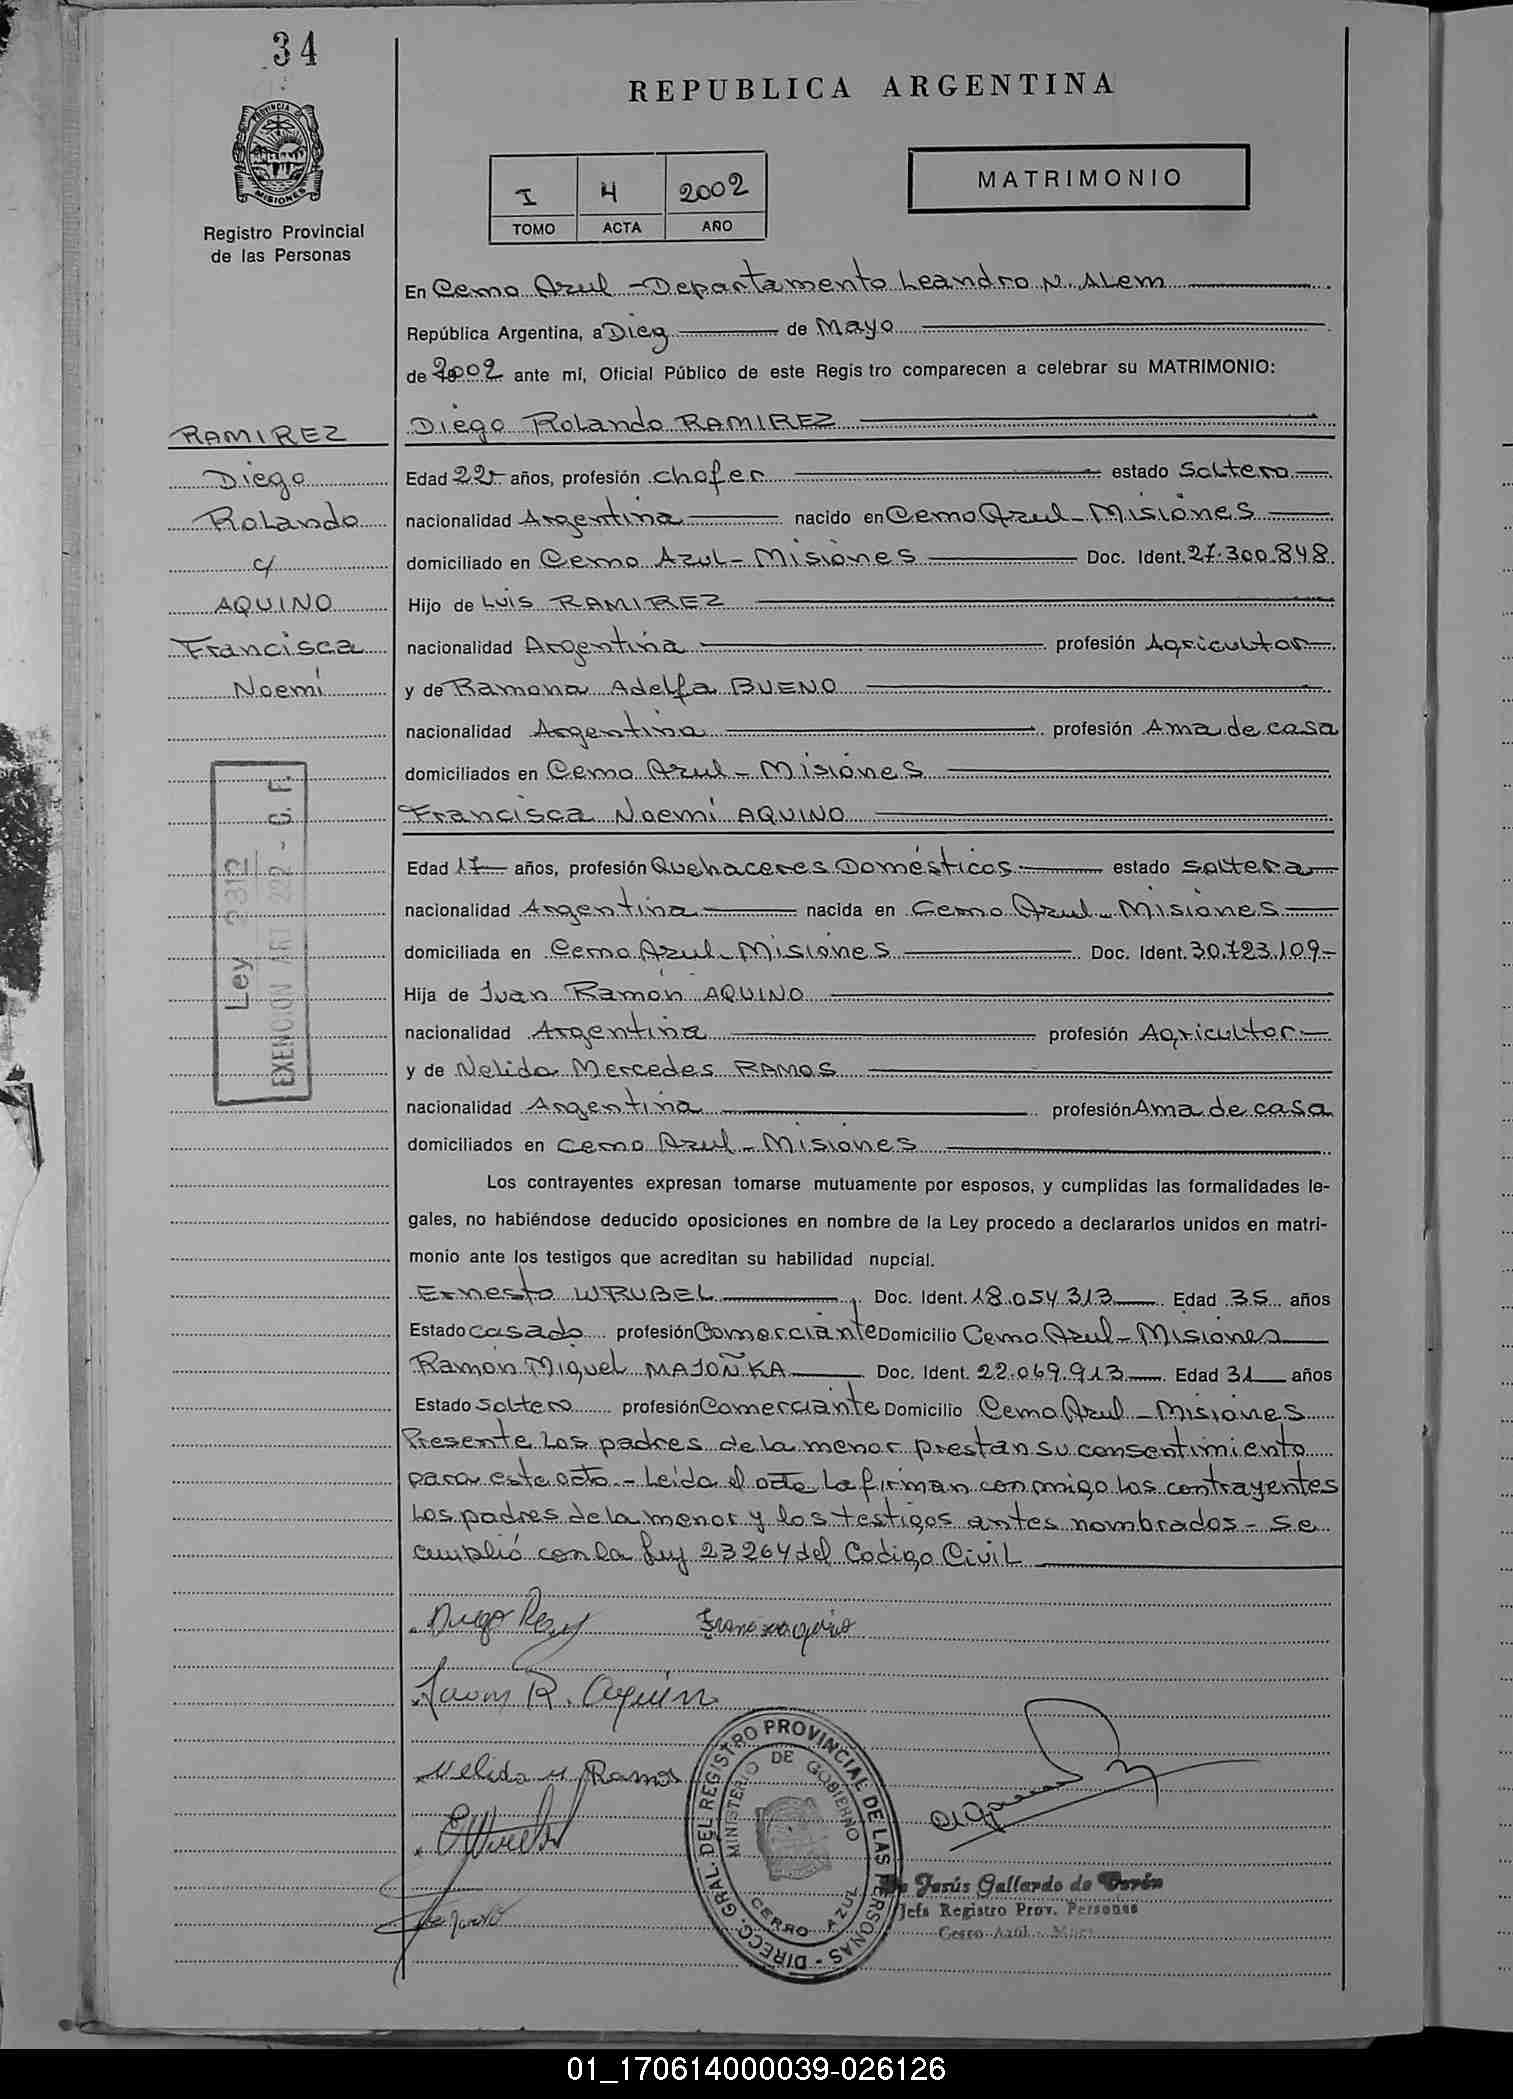 34
REPUBLICA ARGENTINA
PROVINCIA DE
MISIONES
Registro Provincial
de las Personas
I 4 2002
TOMO ACTA AÑO
MATRIMONIO
En Cerro Azul - Departamento Leandro N. Alem
República Argentina, a Diez de Mayo
de 2002 ante mí, Oficial Público de este Registro comparecen a celebrar su MATRIMONIO:
RAMIREZ
Diego
Rolando
c/
AQUINO
Francisca
Noemí
Ley 2312
EXENCION ART 222 - C. F.
Diego Rolando RAMIREZ
Edad 22- años, profesión chofer estado Soltero
nacionalidad Argentina nacido en Cerro Azul - Misiones
domiciliado en Cerro Azul - Misiones Doc. Ident. 27.300.848
Hijo de Luis RAMIREZ
nacionalidad Argentina profesión Agricultor
y de Ramona Adelfa BUENO
nacionalidad Argentina profesión Ama de casa
domiciliados en Cerro Azul - Misiones
Francisca Noemí AQUINO
Edad 17 años, profesión Quehaceres Domésticos estado soltera
nacionalidad Argentina nacida en Cerro Azul - Misiones
domiciliada en Cerro Azul - Misiones Doc. Ident. 30.723.109-
Hija de Juan Ramón AQUINO
nacionalidad Argentina profesión Agricultor
y de Nelida Mercedes RAMOS
nacionalidad Argentina profesión Ama de casa
domiciliados en Cerro Azul - Misiones
Los contrayentes expresan tomarse mutuamente por esposos, y cumplidas las formalidades le-
gales, no habiéndose deducido oposiciones en nombre de la Ley procedo a declararlos unidos en matri-
monio ante los testigos que acreditan su habilidad nupcial.
Ernesto WRUBEL, Doc. Ident. 18.054.313 Edad 35 años
Estado casado profesión Comerciante Domicilio Cerro Azul - Misiones
Ramón Miguel MAJOÑKA Doc. Ident. 22.069.913 Edad 31 años
Estado soltero profesión Comerciante Domicilio Cerro Azul - Misiones
Presente los padres de la menor prestan su consentimiento
para este acto - Leída el acta la firman conmigo los contrayentes
los padres de la menor y los testigos antes nombrados - se
cumplió con la Ley 23264 del Codigo Civil
Juan R. Aquin
Nelida M Ramos
DIRECC. GRAL. DEL REGISTRO PROVINCIAL DE LAS PERSONAS
MINISTERIO DE GOBIERNO
CERRO AZUL
Jesús Gallardo de
Jefa Registro Prov. Personas
Cerro Azul - Mnes
01_170614000039-026126